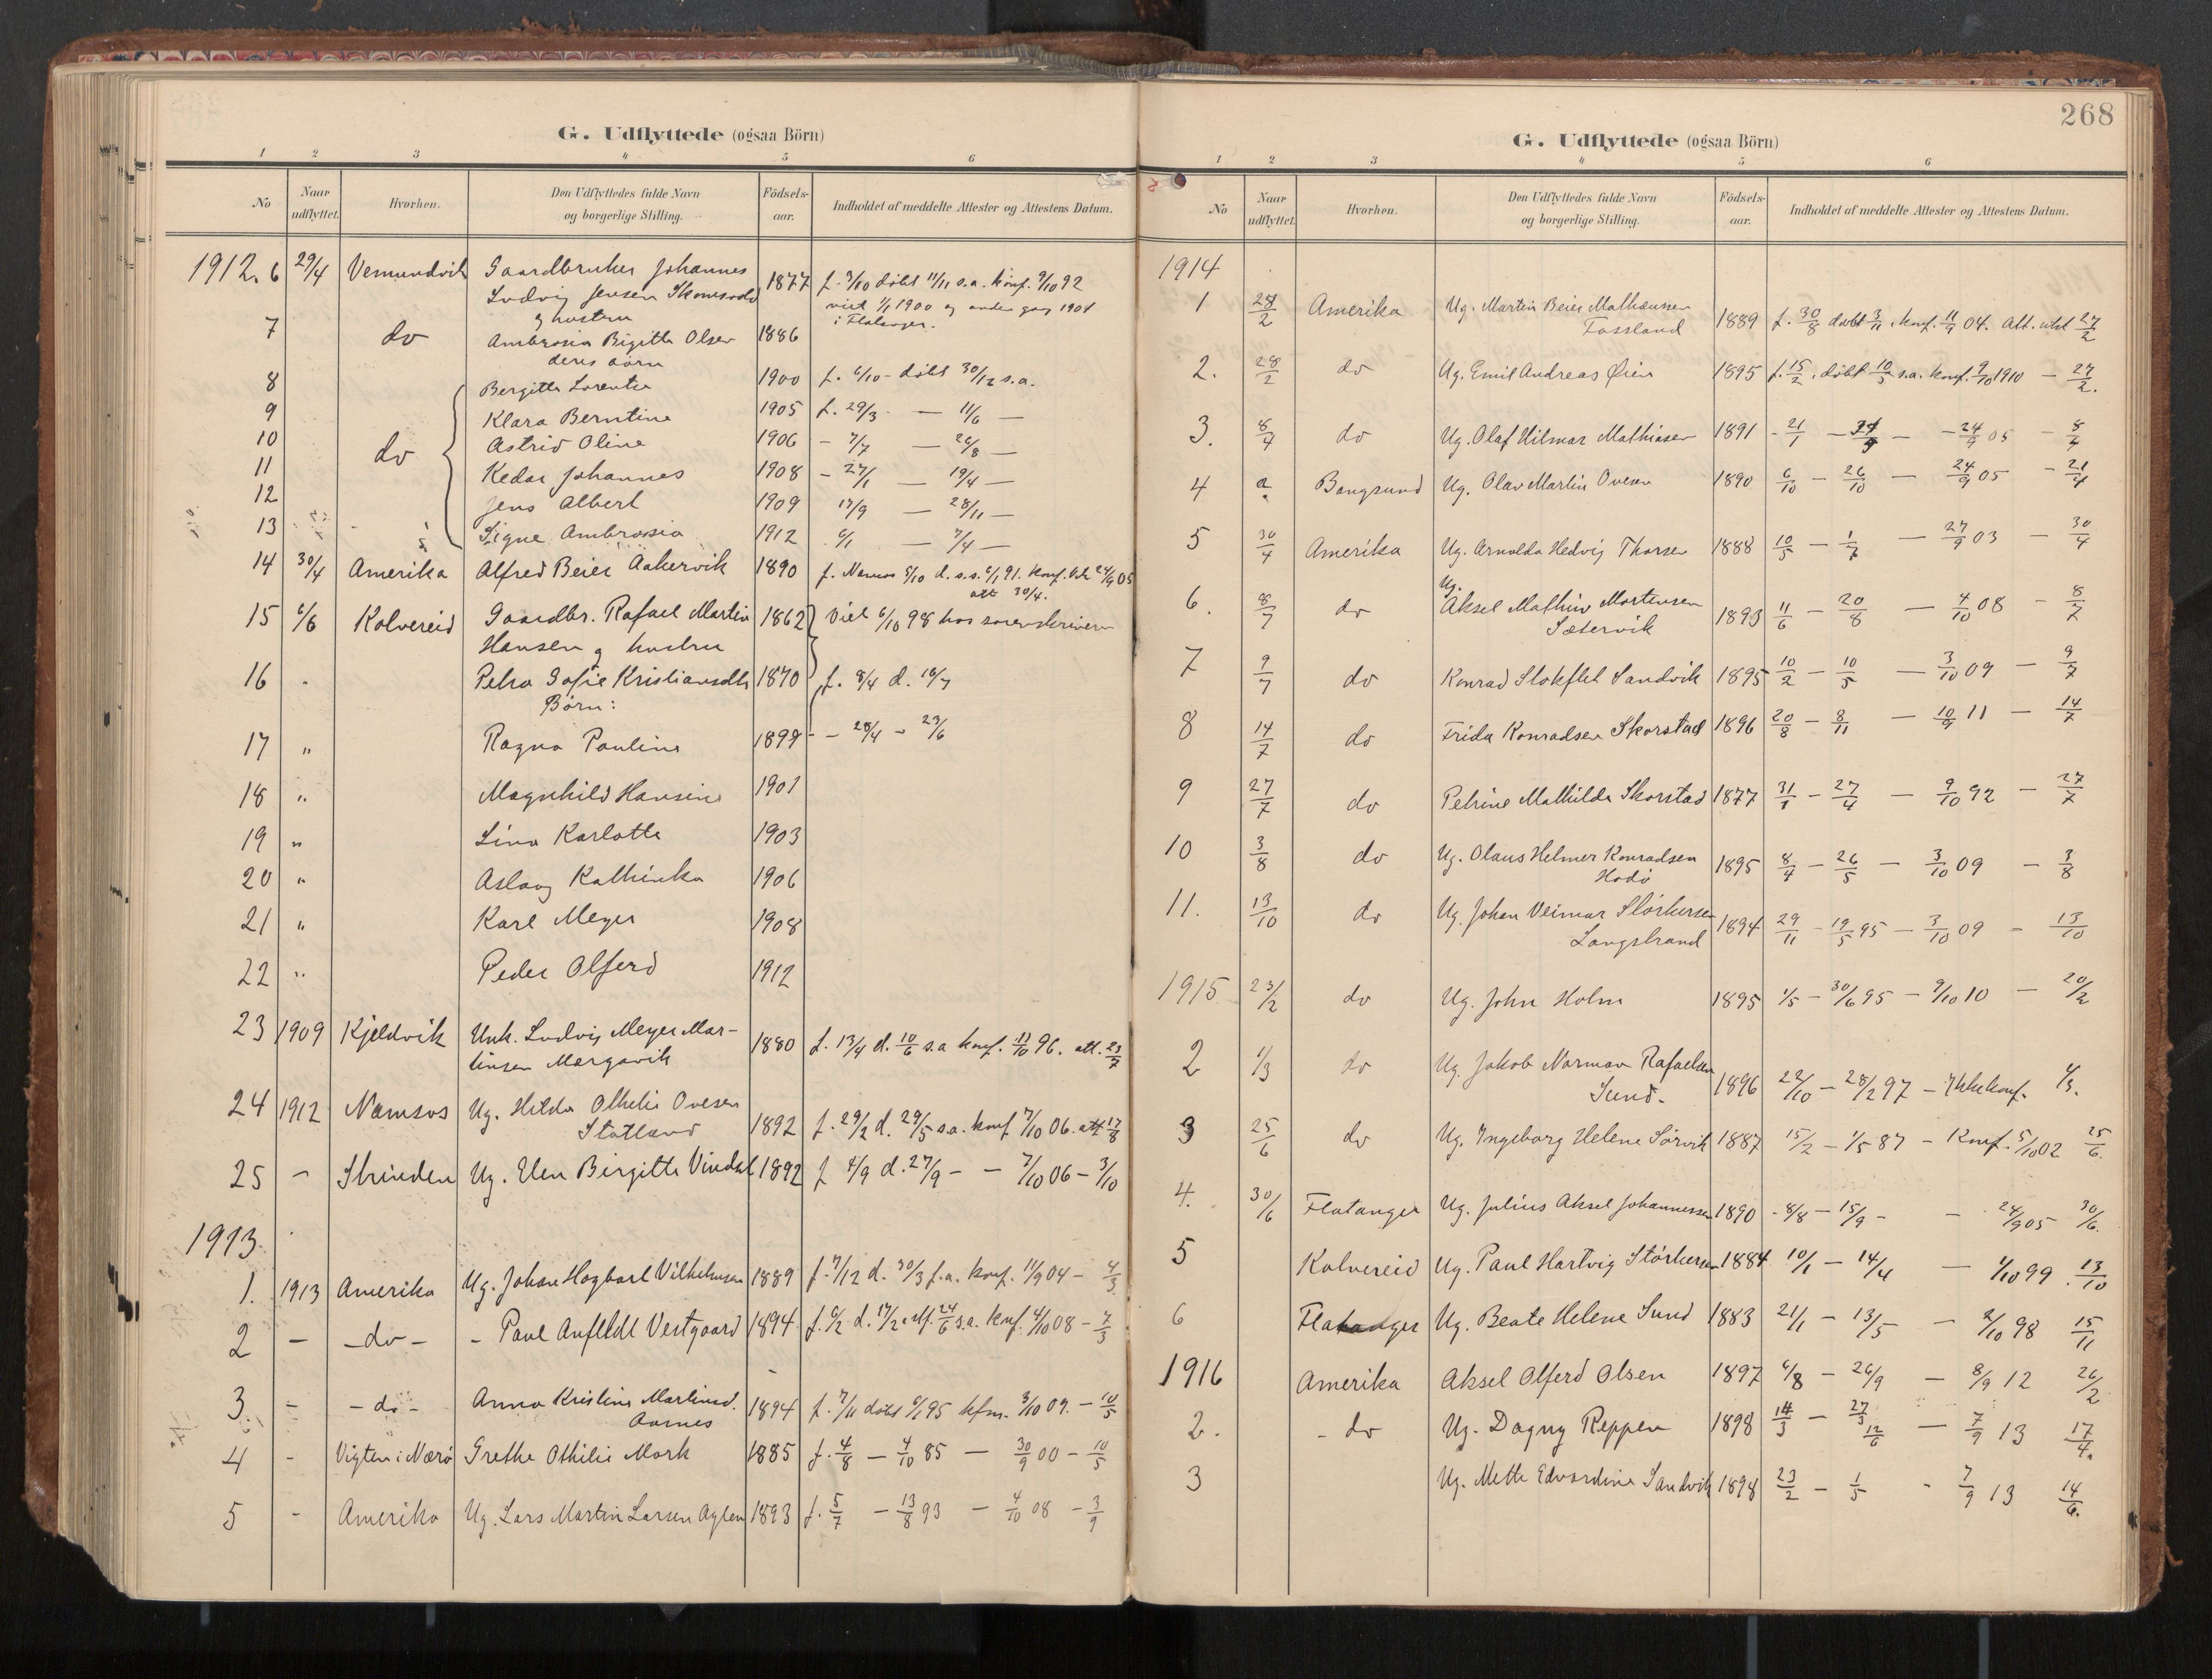 G. Udflyttede (ogsaa Börn)
1 2 3 4 5 6
No
Naar udflyttet.
Hvorhen.
Den Udflyttedes fulde Navn og borgerlige Stilling.
Födsels-aar.
Indholdet af meddelte Attester og Attestens Datum.
1912. 6 29/4 Vemundvik Gaardbruker Johannes 1877 f. 3/10 døbt 11/11 s.a. konf. 9/10 92
Ludvig Jensen
viet 1/1 1900 og anden gang 1904
& hustru
i Flatanger.
7 do Ambrosia Birgitte Olsen 1886
deres børn
8 Bergitte Lorentse 1900 f. 6/10 - døbt 30/12 s.a.
9 Klara Berntine 1905 f. 29/3 — 11/6 —
10 do Astrid Oline 1906 - 7/7 — 26/8 —
11 Kedar Johannes 1908 - 27/1 — 19/4 —
12 Jens Albert 1909 17/9 — 28/11 —
13 Signe Ambrosia 1912 6/1 — 7/4 —
14 30/4 Amerika Alfred Beier Aakervik 1890 f. Namsos 5/10 d. s.s. 6/1 91. konf. 24/9 05
att 30/4.
15 6/6 Kolvereid Gaardbr. Rafael Martin 1862 Viet 6/10 98 hos sorenskriveren
Hansen og hustru
16 Petra Sofie Kristiansdtr 1870 f. 8/4 d. 16/7
Børn:
17 " Ragna Pauline 1899 - 28/4 - 23/6
18 " Magnhild Hansine 1901
19 " Lina Karlotte 1903
20 " Aslaug Kathinka 1906
21 " Karl Meyer 1908
22 " Peder Olferd 1912
23 1909 Kjeldvik Unk. Ludvig Meyer Mar- 1880 f. 13/4 d. 10/6 s.a konf. 11/10 96. att. 23/7
tinsen Morgavik
24 1912 Namsos Ug. Hilda Othelie Ovesen
Statland 1892 f. 29/2 d. 29/5 s.a. konf 7/10 06. att 17/8
25 - Strinden Ug. Elen Birgitte Vindal 1892 f 4/9 d. 27/9 - - 7/10 06 - 3/10
1913
1. 1913 Amerika Ug. Johan Hagbart Vilhelmsen 1889 f. 7/12 d. 30/3 f.a. konf. 11/9 04 - 4/3
2 - -do- - Paul Anfeldt Vestgaard 1894 f. 6/2 d. 17/2 24/6 s.a. konf. 4/10 08 - 7/3
3 - -do- Anna Kristine Martinsd. 1894 f. 7/11 døbt 6/1 95 kfm. 3/10 09. - 10/5
Aarnes
4 - Vigten i Nærø Grethe Othilie Mork 1885 f. 4/8 — 4/10 85 — 30/9 00 - 10/5
5 - Amerika Ug. Lars Martin Larsen Aglen 1893 f. 5/7 - 13/8 93 - 4/10 08 - 3/9
268
G. Udflyttede (ogsaa Börn)
1 2 3 4 5 6
No
Naar udflyttet.
Hvorhen.
Den Udflyttedes fulde Navn og borgerlige Stilling.
Födsels-aar.
Indholdet af meddelte Attester og Attestens Datum.
1914
1 28/2 Amerika Ug. Martin Beier Mathæussen
Fossland 1889 f. 30/8 døbt 3/11, konf. 11/9 04. Att. utst 27/2
2. 28/2 do Ug. Emil Andreas Øien 1895 f. 15/2, døbt 10/5 s.a. konf. 9/10 1910 - 27/2.
3. 8/4 do Ug. Olaf Hilmar Mathiasen 1891 - 21/1 - - 24/9 05 - 8/4
4 Bangsund Ug. Olav Martin Ovesen 1890 6/10 - 26/10 - 24/9 05 - 21/4
5 30/4 Amerika Ug. Arnolda Hedvig Thorsen 1888 10/5 - 1/7 - 27/9 03 - 30/4
6. 8/7 do Ug. Aksel Mathin Mortensen
Sætervik 1893 11/6 - 20/8 - 4/10 08 - 8/7
7 9/7 do Konrad Stokflet Sandvik 1895 10/2 - 10/5 - 3/10 09 - 9/7
8 14/7 do Frida Konradsen Skorstad 1896 20/8 - 8/11 - 10/9 11 - 14/7
9 27/7 do Petrine Mathilda Skorstad 1877 31/1 - 27/4 - 9/10 92 - 27/7
10 3/8 do Ug. Olaus Helmer Konradsen
Hodø 1895 8/4 - 26/5 - 3/10 09 - 3/8
11. 13/10 do Ug. Johan Veimar Størkersen
Langstrand 1894 29/11 - 19/5 95 - 3/10 09 - 13/10
1915 23/2 do Ug. John Holm 1895 1/5 - 30/6 95 - 9/10 10 - 20/2
2 1/3 do Ug. Jakob Norman Rafaelsen
Sund. 1896 22/10 - 28/2 97 - Ikke konf. 1/3.
3 25/6 do Ug. Ingeborg Helene Sørvik 1887 15/2 - 1/5 87 - Konf. 5/10 02 25/6.
4. 30/6 Flatanger Ug. Julius Aksel Johannessen 1890 - 8/8 - 15/9 - - 24/9 05 30/6.
5 Kolvereid Ug. Paul Hartvig Størkersen 1884 10/1 - 14/4 - 1/10 99 13/10
6 Flatanger Ug. Beate Helene Sund 1883 21/1 - 13/5 - 2/10 98 15/11
1916 Amerika Aksel Olferd Olsen 1897 6/8 - 26/9 - 8/9 12 26/2
2. - do Ug. Dagny Reppen 1898 14/3 - 27/3 12/6 - 7/9 13 17/4.
3 Ug. Mette Edvardine Sandvik 1898 23/2 - 1/5 - 7/9 13 14/6.